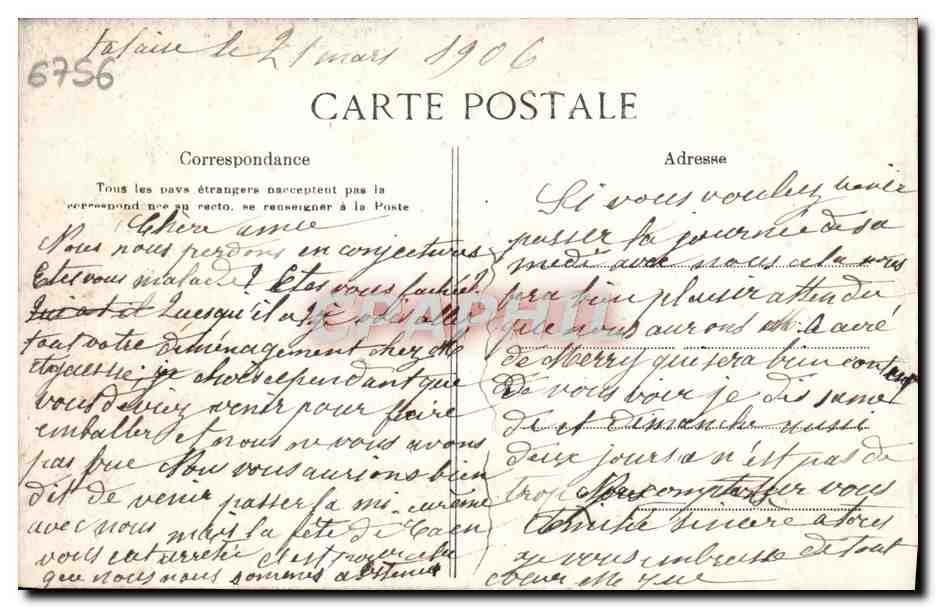 Falaise le 21 mars 1906
6756
CARTE POSTALE
Correspondance
Tous les pays étrangers nacceptent pas la
correspondance au recto, se renseigner à la Poste
Chère amie
Nous nous perdons en conjectures
Etes vous malade? Etes vous fachée?
Qui a t il Quesqu'il a
tout votre déménagement chez Me
cependant que
vous deviez venir pour faire
emballer et nous ne vous avons
pas vue Nous vous aurions bien
dit de venir passer la mi-carême
avec nous mais la fête de Caen
vous eut arretée c'est pour cela
que nous nous sommes abstenus
Adresse
Si vous voulez venir
passer la journée de sa
medi avec nous cela nous
fera bien plaisir attendu
que nous aurons
de Merry qui sera bien content
de vous voir je dis same
di et dimanche aussi
deux jours n'est pas de
trop Nous comptons sur vous
Amitié sincère a tous
je vous embrasse de tout
coeur
CPAPHIL